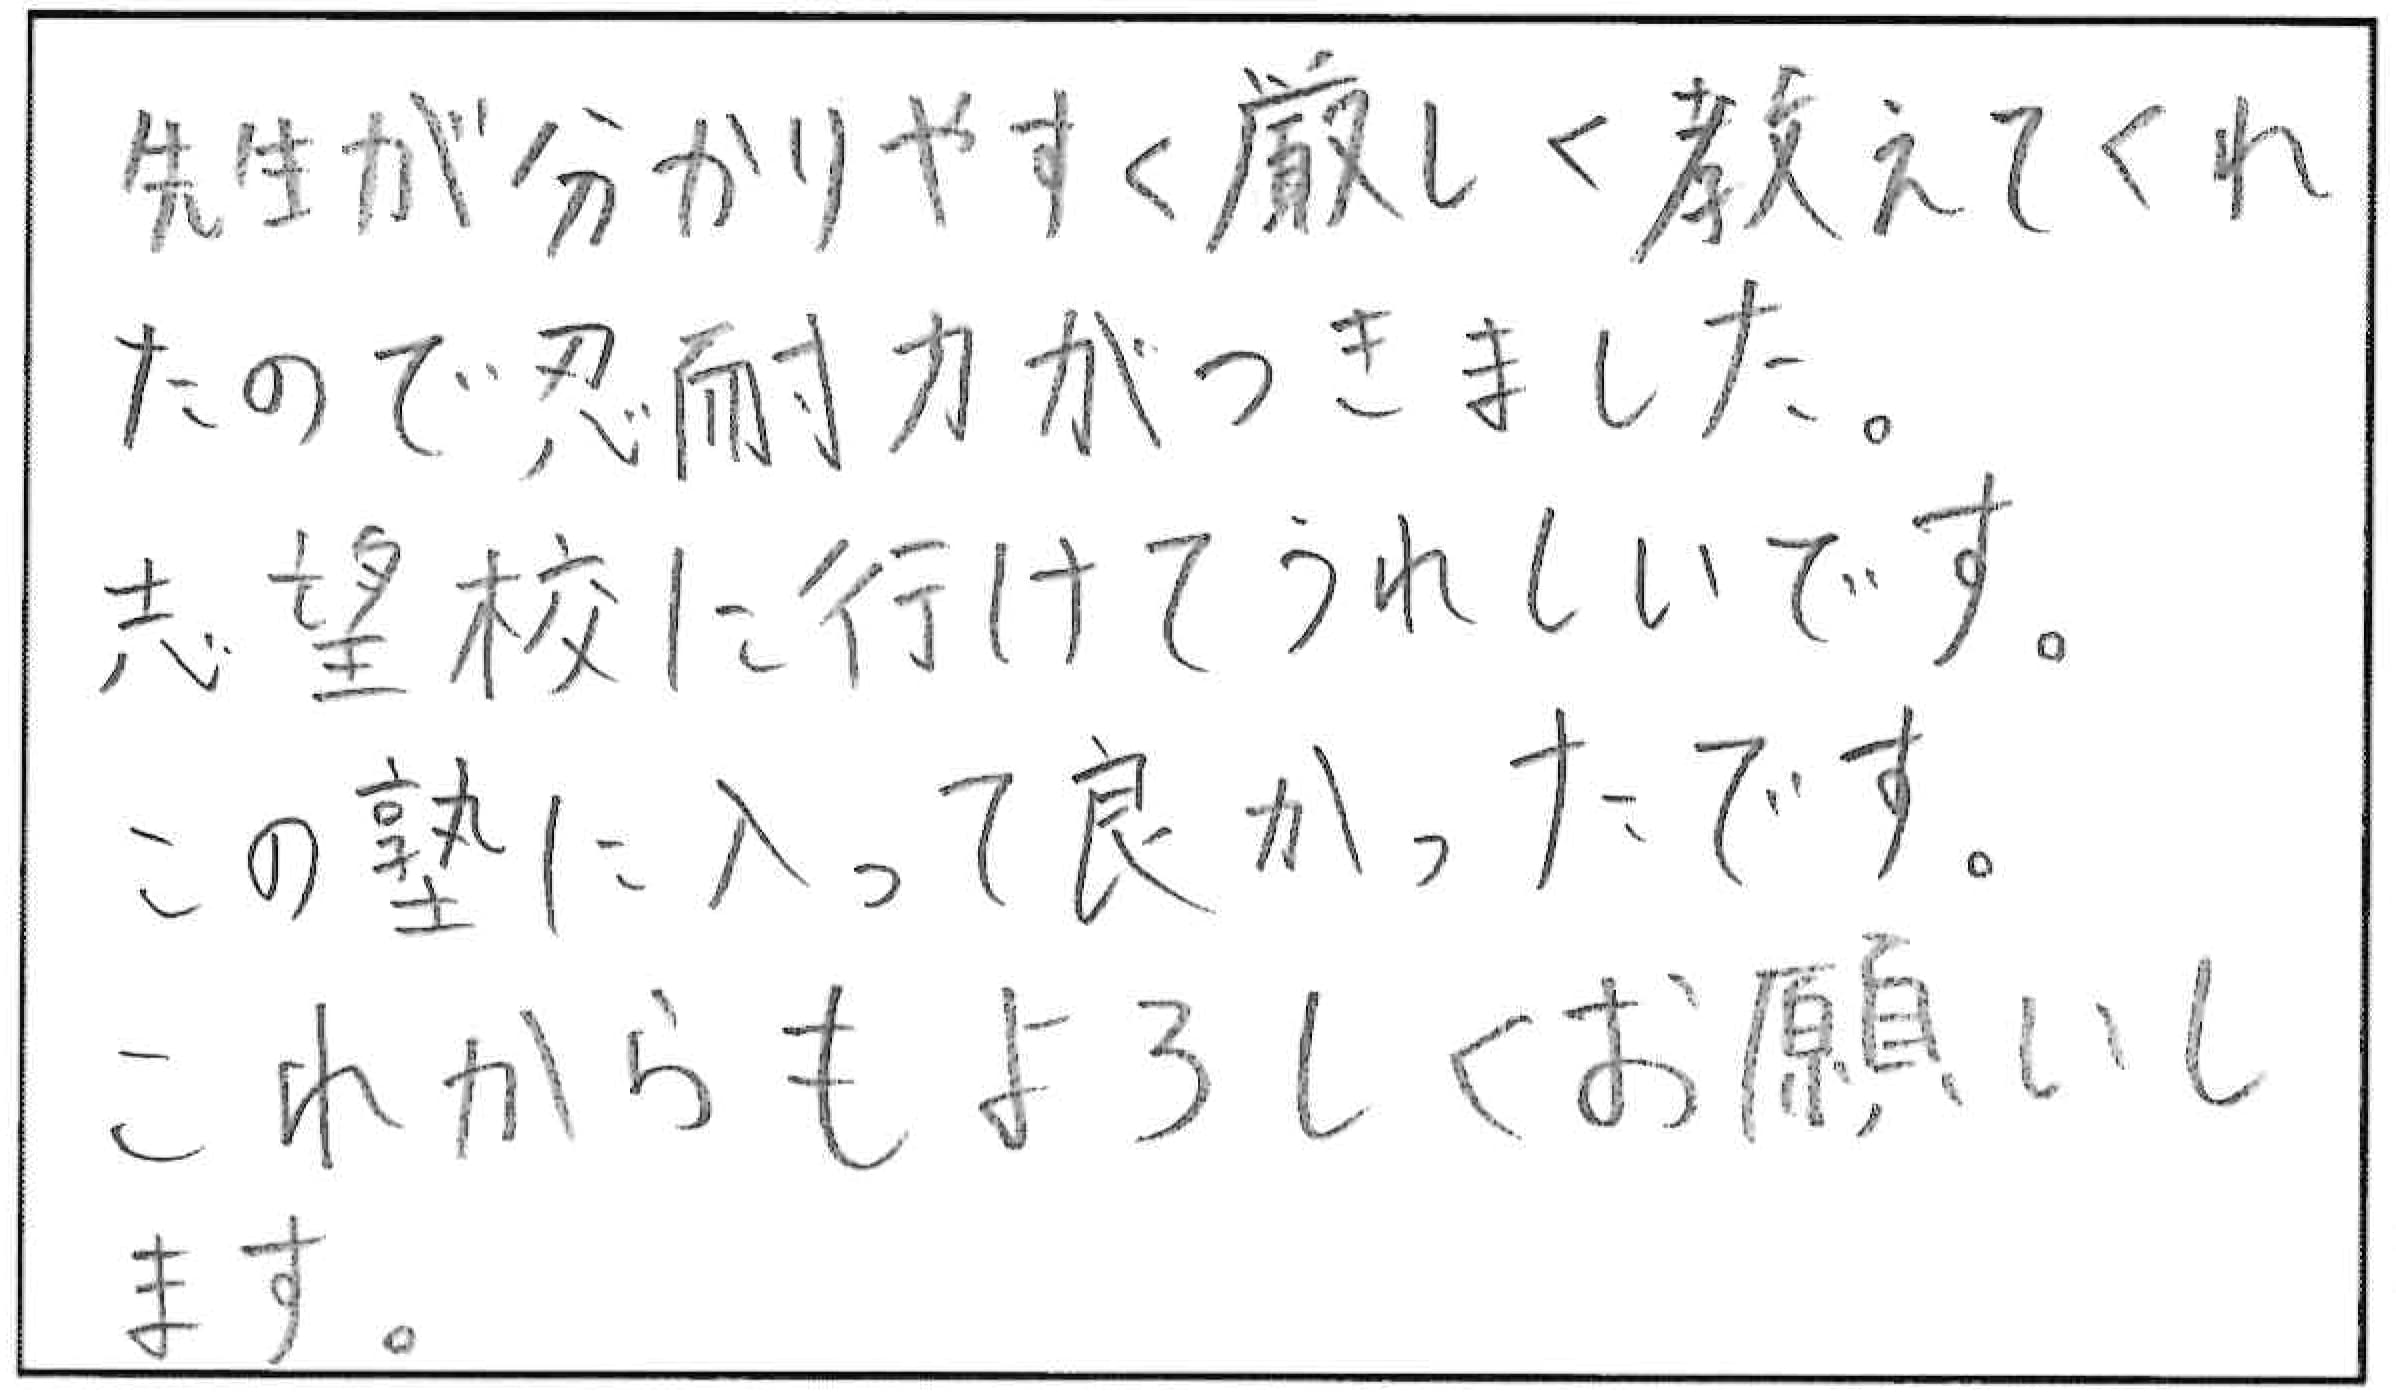 先生が分かりやすく厳しく教えてくれ
たので忍耐力がつきました。
志望校に行けてうれしいです。
この塾に入って良かったです。
これからもよろしくお願いし
ます。